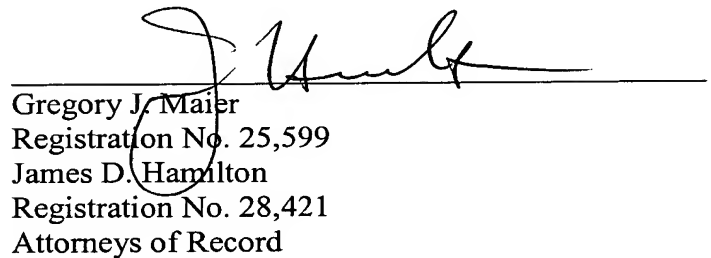 J. Hamilton
Gregory J. Maier
Registration No. 25,599
James D. Hamilton
Registration No. 28,421
Attorneys of Record